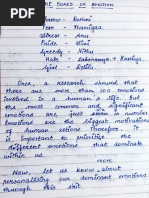 THE BOXES OF EMOTION
Sorrow - Rathai
Fear - Thamizha
Stress - Anu
Pride - Vini
Greedy - Nithu
Hate - Lakshanya + Kavliya
Girl -
Once, a research showed that
there are more than 100 emotions
involved in a human's life. But
the most common and significant
emotions are just seven in number
emotions are the biggest motivations
of human actions. Therefore it
is important to realise the
different emotions that dominate
within us.
more
Now, let us know about
personalizing our dominant emotions
through this skit.